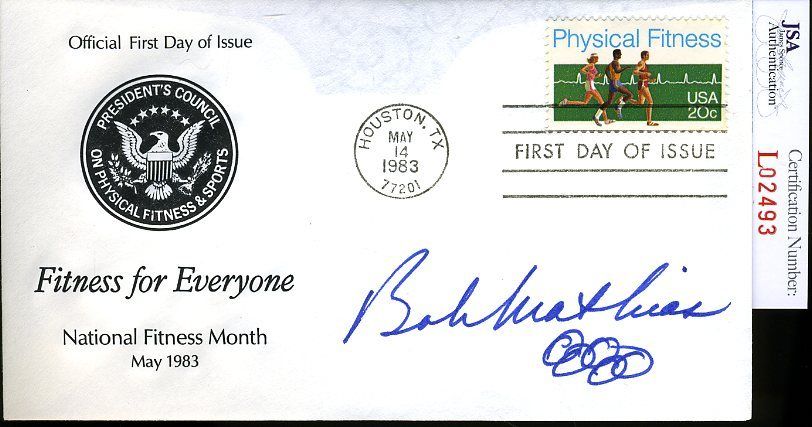 Official First Day of Issue
PRESIDENT'S COUNCIL
ON PHYSICAL FITNESS & SPORTS
Fitness for Everyone
National Fitness Month
May 1983
HOUSTON, TX
MAY
14
1983
77201
Physical Fitness
USA
20c
FIRST DAY OF ISSUE
Bob Mathias
JSA
James Spence
Authentication
Certification Number:
L02493